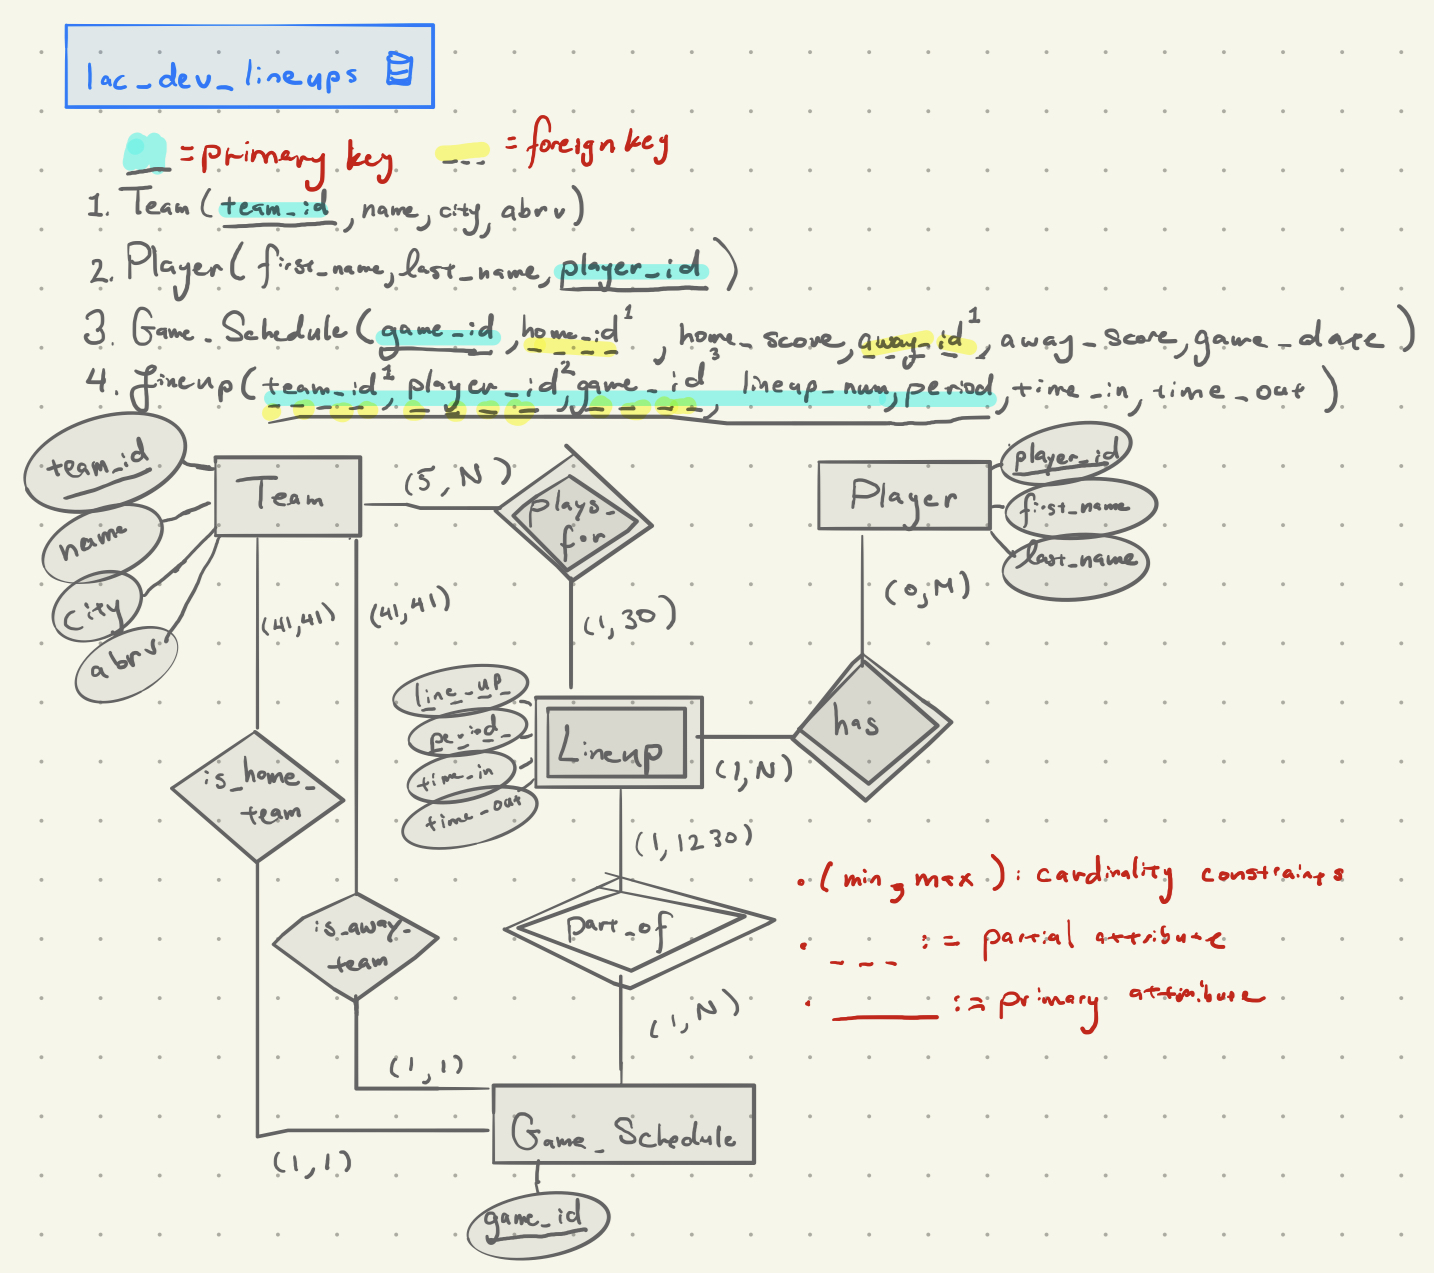 lac_dev_lineups
= primary key
= foreign key
1. Team (team_id, name, city, abrv)
2. Player (first_name, last_name, player_id)
3. Game_Schedule (game_id, home_id¹, home_score, away_id¹, away_score, game_date)
4. Lineup (team_id¹, player_id², game_id³, lineup_num, period, time_in, time_out)
team_id
name
city
abrv
Team
(5, N)
plays_
for
Player
player_id
first_name
last_name
(41,41)
(41,41)
(1, 30)
(0, M)
line_up_
period
time_in
time_out
Lineup
(1, N)
has
is_home_
team
(1, 1230)
is_away_
team
part_of
• (min, max) : cardinality constraints
• _ _ _ := partial attribute
• ____ := primary attribute
(1, N)
(1, 1)
(1, 1)
Game_Schedule
game_id